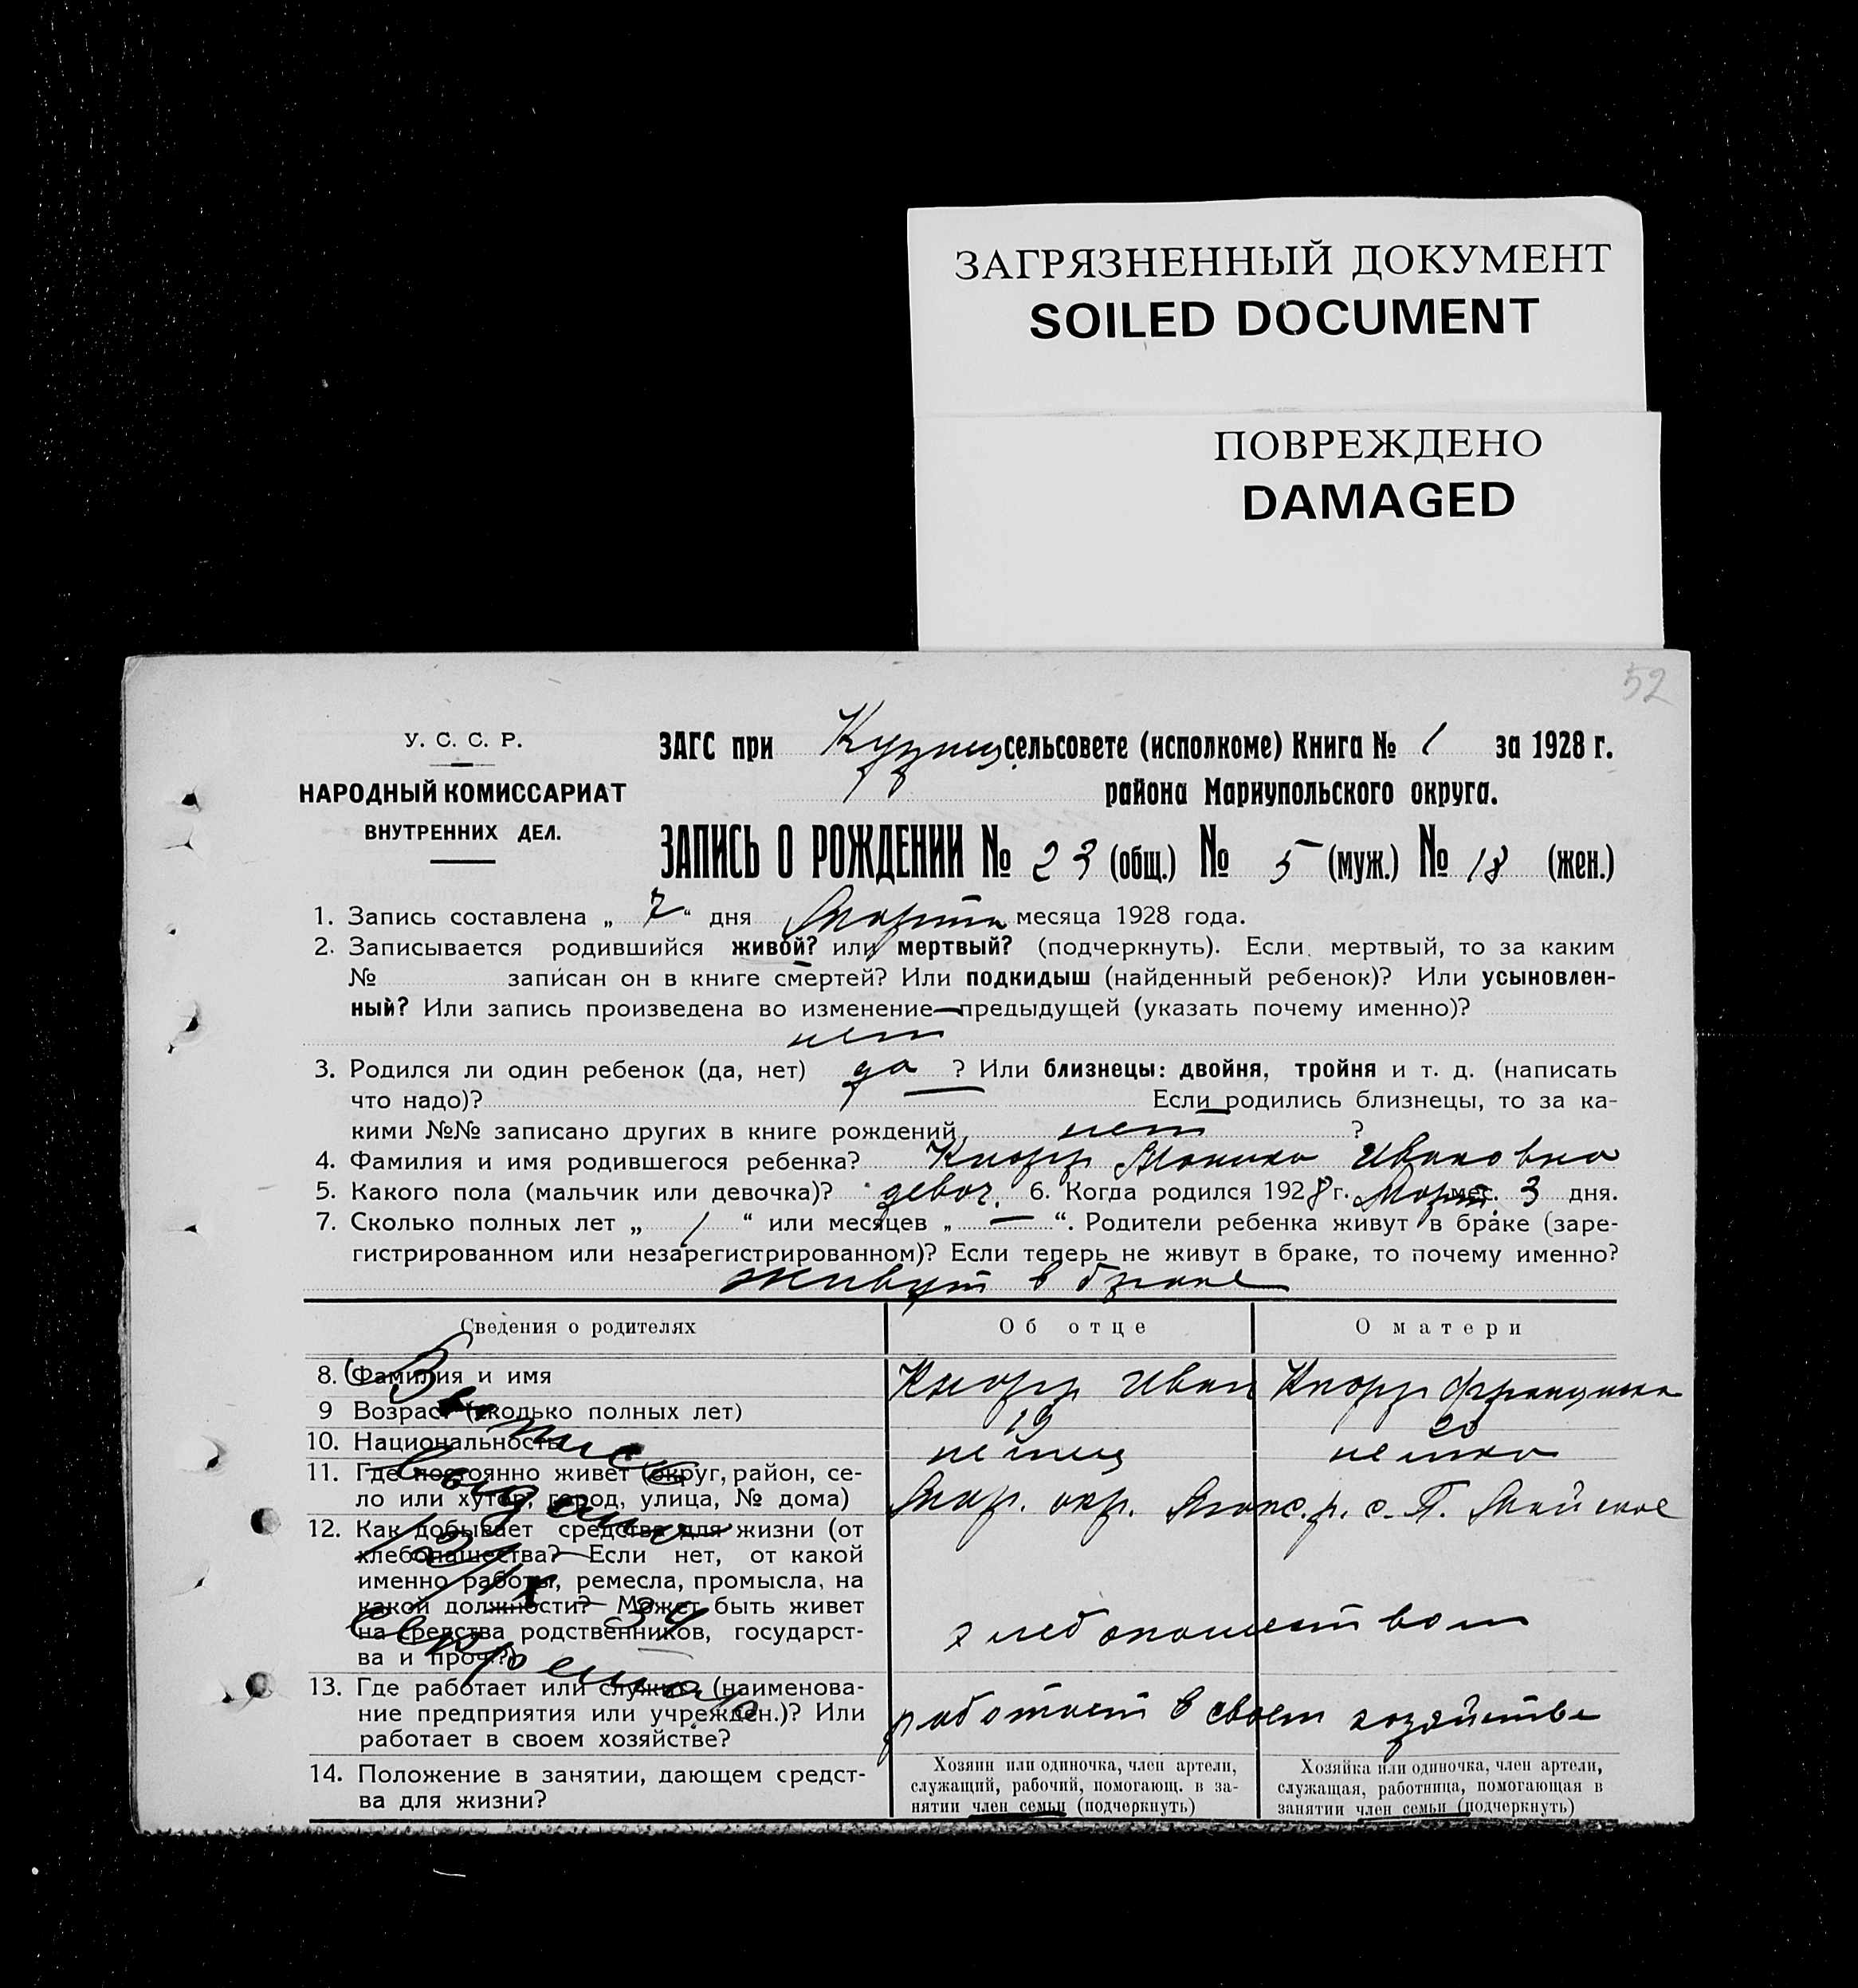 ЗАГРЯЗНЕННЫЙ ДОКУМЕНТ
SOILED DOCUMENT
ПОВРЕЖДЕНО
DAMAGED
52
У. С. С. Р.
НАРОДНЫЙ КОМИССАРИАТ
ВНУТРЕННИХ ДЕЛ.
ЗАГС при Кузнец. сельсовете (исполкоме) Книга № 1 за 1928 г.
района Мариупольского округа.
ЗАПИСЬ О РОЖДЕНИИ № 23 (общ.) № 5 (муж.) № 18 (жен.)
1. Запись составлена „ 7 “ дня Марта месяца 1928 года.
2. Записывается родившийся живой? или мертвый? (подчеркнуть). Если мертвый, то за каким
№ записан он в книге смертей? Или подкидыш (найденный ребенок)? Или усыновлен-
ный? Или запись произведена во изменение предыдущей (указать почему именно)?
нет
3. Родился ли один ребенок (да, нет) да ? Или близнецы: двойня, тройня и т. д. (написать
что надо)? Если родились близнецы, то за ка-
кими №№ записано других в книге рождений нет ?
4. Фамилия и имя родившегося ребенка? Кнорр Моника Ивановна
5. Какого пола (мальчик или девочка)? девоч. 6. Когда родился 1928 г. Март. мес. 3 дня.
7. Сколько полных лет „ 1 “ или месяцев „ — “. Родители ребенка живут в браке (заре-
гистрированном или незарегистрированном)? Если теперь не живут в браке, то почему именно?
живут в браке
Сведения о родителях Об отце О матери
8. Фамилия и имя Кнорр Иван Кнорр Франциска
9 Возраст (сколько полных лет) 19 20
10. Национальность немец немка
11. Где постоянно живет (округ, район, се-
ло или хутор, город, улица, № дома) Мар. окр. р. с. Майское
12. Как добывает средства для жизни (от
хлебопашества? Если нет, от какой
именно работы, ремесла, промысла, на
какой должности? Может быть живет
на средства родственников, государст-
ва и проч.?) хлебопашеством
13. Где работает или служит (наименова-
ние предприятия или учрежден.)? Или
работает в своем хозяйстве? работает в своем хозяйстве
14. Положение в занятии, дающем средст-
ва для жизни?
Хозяин или одиночка, член артели,
служащий, рабочий, помогающ. в за-
нятии член семьи (подчеркнуть)
Хозяйка или одиночка, член артели,
служащая, работница, помогающая в
занятии член семьи (подчеркнуть)
выдано
34
секретар